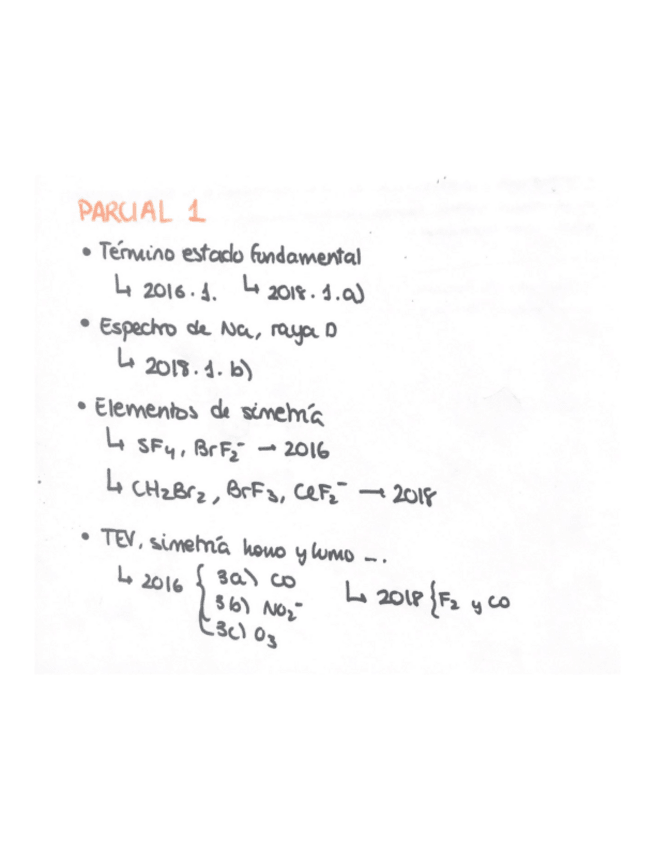 PARCIAL 1
• Término estado fundamental
↳ 2016.1. ↳ 2018.1.a)
• Espectro de Na, raya D
↳ 2018.1.b)
• Elementos de simetría
↳ SF₄, BrF₂⁻ → 2016
↳ CH₂Br₂, BrF₃, CeF₂⁻ → 2018
• TEV, simetría homo y lumo ...
↳ 2016 { 3a) CO ↳ 2018 { F₂ y CO
3b) NO₂⁻
3c) O₃